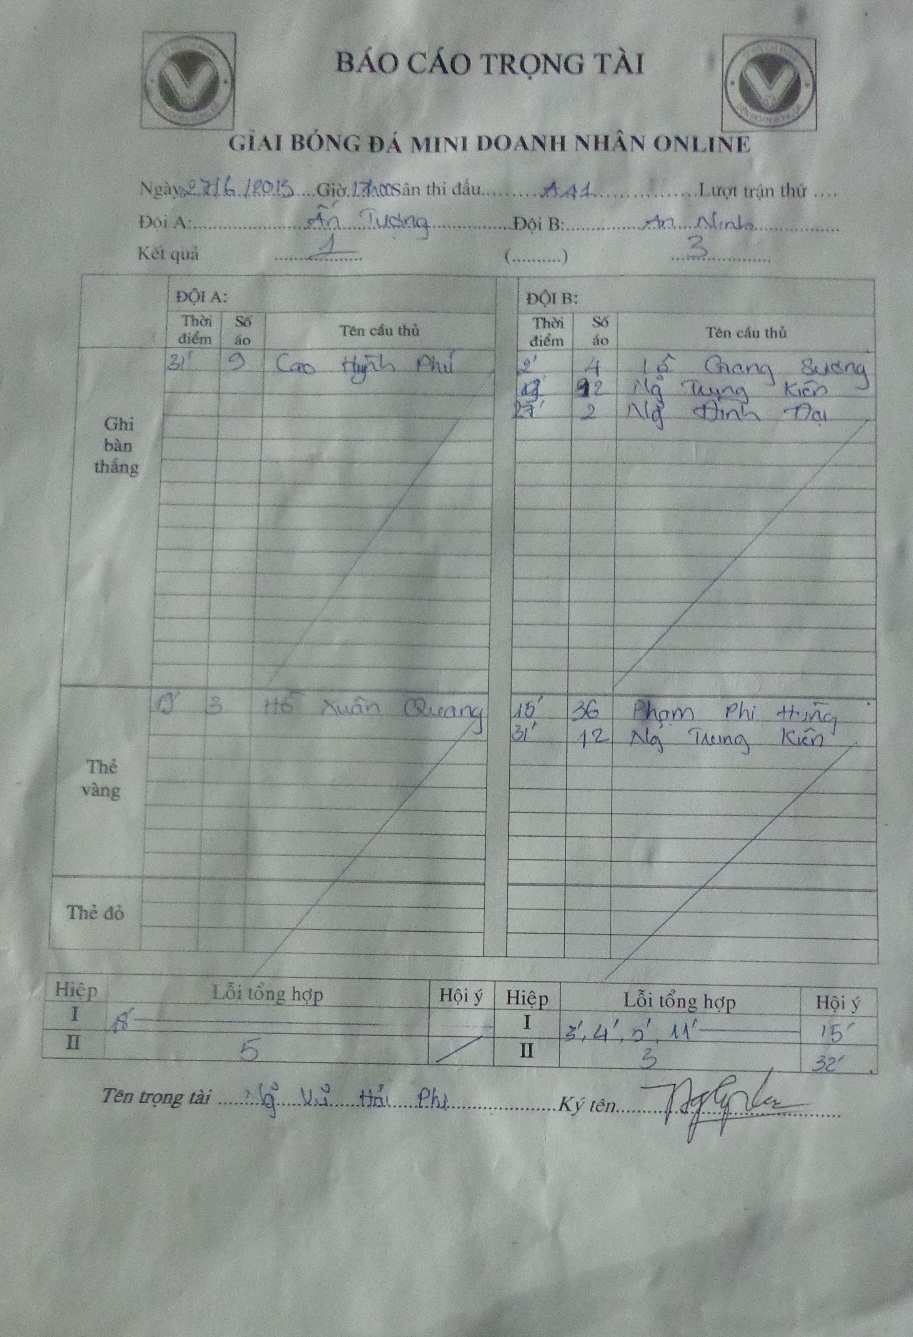 BÁO CÁO TRỌNG TÀI
GIẢI BÓNG ĐÁ MINI DOANH NHÂN ONLINE
Ngày 27/6/2013 Giờ 17h00 Sân thi đấu A41 Lượt trận thứ ....
Đội A: Ấn Tượng Đội B: An Ninh
Kết quả 1 (..........) 3
ĐỘI A: ĐỘI B:
Thời điểm Số áo Tên cầu thủ Thời điểm Số áo Tên cầu thủ
Ghi bàn thắng
31' 9 Cao Huỳnh Phú 2' 4 Lê Giang Sương
12 Ng Trung Kiên
27' 2 Ng Đình Đại
Thẻ vàng
19' 3 Hồ Xuân Quang 15' 36 Phạm Phi Hùng
31' 12 Ng Trung Kiên
Thẻ đỏ
Hiệp Lỗi tổng hợp Hội ý Hiệp Lỗi tổng hợp Hội ý
I 18' I 3', 4', 5', 11' 15'
II 5 II 3 32'
Tên trọng tài Ng Vũ Hải Phi Ký tên